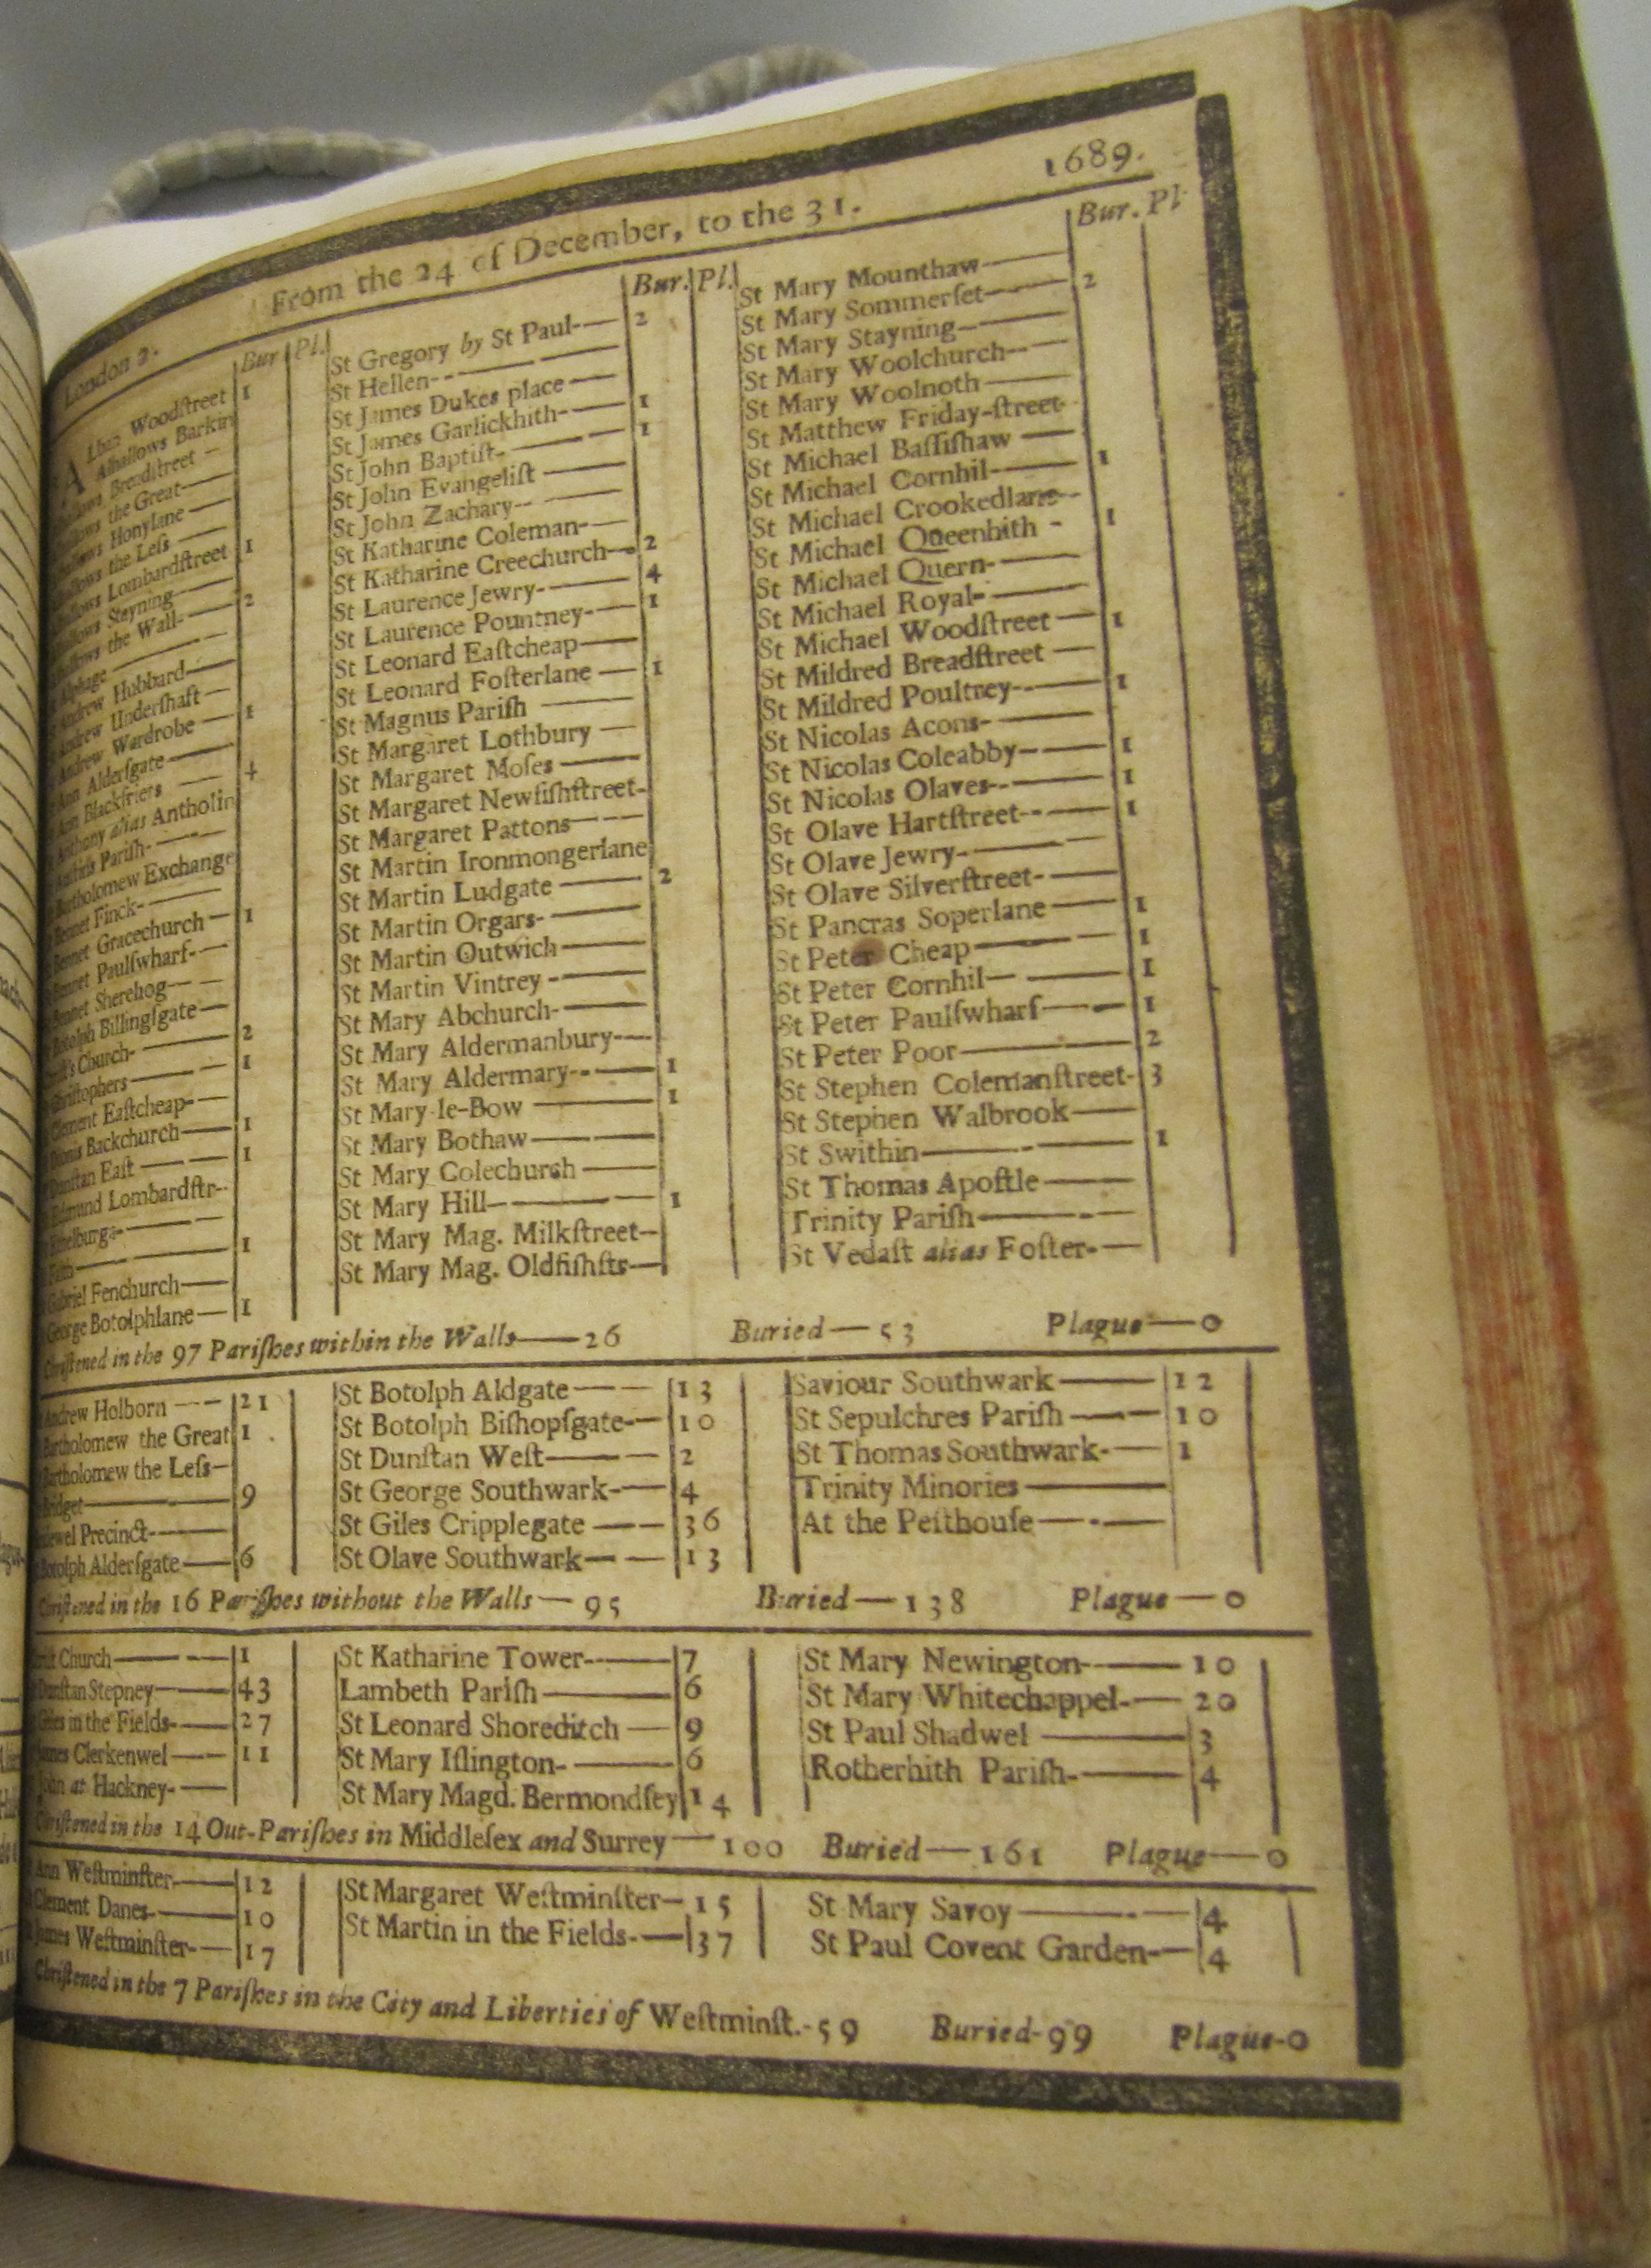 London 2. From the 24 of December, to the 31. 1689.
Bur. Pl.
ALban Woodſtreet 1
Alhallows Barkin
Breadſtreet
the Great
Honylane
the Leſs
Lombardſtreet 1
Stayning
the Wall 2
Alphage
Andrew Hubbard
Andrew Underſhaft
Andrew Wardrobe 1
Ann Alderſgate
Ann Blackfriers 4
Anthony alias Antholin
Auſtins Pariſh
Bartholomew Exchange
Bennet Finck
Bennet Gracechurch 1
Bennet Paulſwharf
Bennet Sherehog
Botolph Billingſgate
Church 2
Chriſtophers 1
Clement Eaſtcheap
Dionis Backchurch 1
Dunſtan Eaſt 1
Edmund Lombardſtr
Ethelburga
Faith 1
Gabriel Fenchurch
George Botolphlane 1
Bur. Pl.
St Gregory by St Paul 2
St Hellen
St James Dukes place
St James Garlickhith 1
St John Baptiſt 1
St John Evangeliſt
St John Zachary
St Katharine Coleman
St Katharine Creechurch 2
St Laurence Jewry 4
St Laurence Pountney 1
St Leonard Eaſtcheap
St Leonard Foſterlane 1
St Magnus Pariſh
St Margaret Lothbury
St Margaret Moſes
St Margaret Newfiſhſtreet
St Margaret Pattons
St Martin Ironmongerlane
St Martin Ludgate 2
St Martin Orgars
St Martin Outwich
St Martin Vintrey
St Mary Abchurch
St Mary Aldermanbury
St Mary Aldermary 1
St Mary-le-Bow 1
St Mary Bothaw
St Mary Colechurch
St Mary Hill 1
St Mary Mag. Milkſtreet
St Mary Mag. Oldfiſhſts
Bur. Pl
St Mary Mounthaw
St Mary Sommerſet 2
St Mary Stayning
St Mary Woolchurch
St Mary Woolnoth
St Matthew Friday-ſtreet
St Michael Baſſiſhaw
St Michael Cornhil 1
St Michael Crookedlane
St Michael Queenhith 1
St Michael Quern
St Michael Royal
St Michael Woodſtreet 1
St Mildred Breadſtreet
St Mildred Poultrey 1
St Nicolas Acons
St Nicolas Coleabby 1
St Nicolas Olaves 1
St Olave Hartſtreet 1
St Olave Jewry
St Olave Silverſtreet
St Pancras Soperlane 1
St Peter Cheap 1
St Peter Cornhil 1
St Peter Paulſwharf 1
St Peter Poor 2
St Stephen Colemanſtreet 3
St Stephen Walbrook
St Swithin 1
St Thomas Apoſtle
Trinity Pariſh
St Vedaſt alias Foſter
Chriſtened in the 97 Pariſhes within the Walls—26 Buried—53 Plague—0
Andrew Holborn 21
Bartholomew the Great 1
Bartholomew the Leſs
Bridget 9
Bridewel Precinct
Botolph Alderſgate 6
St Botolph Aldgate 13
St Botolph Biſhopſgate 10
St Dunſtan Weſt 2
St George Southwark 4
St Giles Cripplegate 36
St Olave Southwark 13
Saviour Southwark 12
St Sepulchres Pariſh 10
St Thomas Southwark 1
Trinity Minories
At the Peſthouſe
Chriſtened in the 16 Pariſhes without the Walls—95 Buried—138 Plague—0
Church 1
Dunſtan Stepney 43
Giles in the Fields 27
James Clerkenwel 11
John at Hackney
St Katharine Tower 7
Lambeth Pariſh 6
St Leonard Shoreditch 9
St Mary Iſlington 6
St Mary Magd. Bermondſey 14
St Mary Newington 10
St Mary Whitechappel 20
St Paul Shadwel 3
Rotherhith Pariſh 4
Chriſtened in the 14 Out-Pariſhes in Middleſex and Surrey—100 Buried—161 Plague—0
Ann Weſtminſter 12
Clement Danes 10
James Weſtminſter 17
St Margaret Weſtminſter 15
St Martin in the Fields 37
St Mary Savoy 4
St Paul Covent Garden 4
Chriſtened in the 7 Pariſhes in the City and Liberties of Weſtminſt.-59 Buried-99 Plague-0